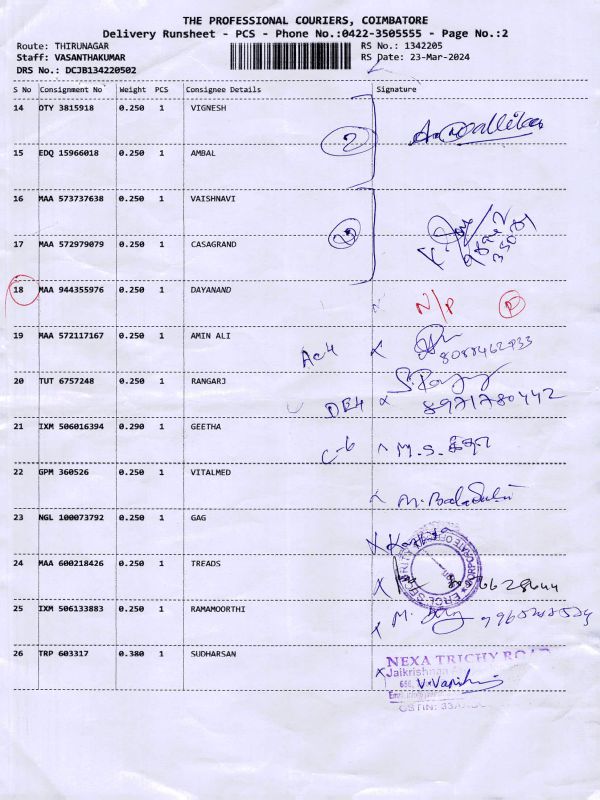 THE PROFESSIONAL COURIERS, COIMBATORE
Delivery Runsheet - PCS - Phone No.:0422-3505555 - Page No.:2
Route: THIRUNAGAR RS No.: 1342205
Staff: VASANTHAKUMAR RS Date: 23-Mar-2024
DRS No.: DCJB134220502
S No Consignment No Weight PCS Consignee Details Signature
14 DTY 3815918 0.250 1 VIGNESH
2
15 EDQ 15966018 0.250 1 AMBAL
16 MAA 573737638 0.250 1 VAISHNAVI
17 MAA 572979079 0.250 1 CASAGRAND
18 MAA 944355976 0.250 1 DAYANAND N/P P
19 MAA 572117167 0.250 1 AMIN ALI
20 TUT 6757248 0.250 1 RANGARJ
8971780442
21 IXM 506016394 0.290 1 GEETHA
C-6 M.S.
22 GPM 360526 0.250 1 VITALMED
23 NGL 100073792 0.250 1 GAG
24 MAA 600218426 0.250 1 TREADS
25 IXM 506133883 0.250 1 RAMAMOORTHI
26 TRP 603317 0.380 1 SUDHARSAN
NEXA TRICHY ROAD
Jaikrishna
GSTIN: 33